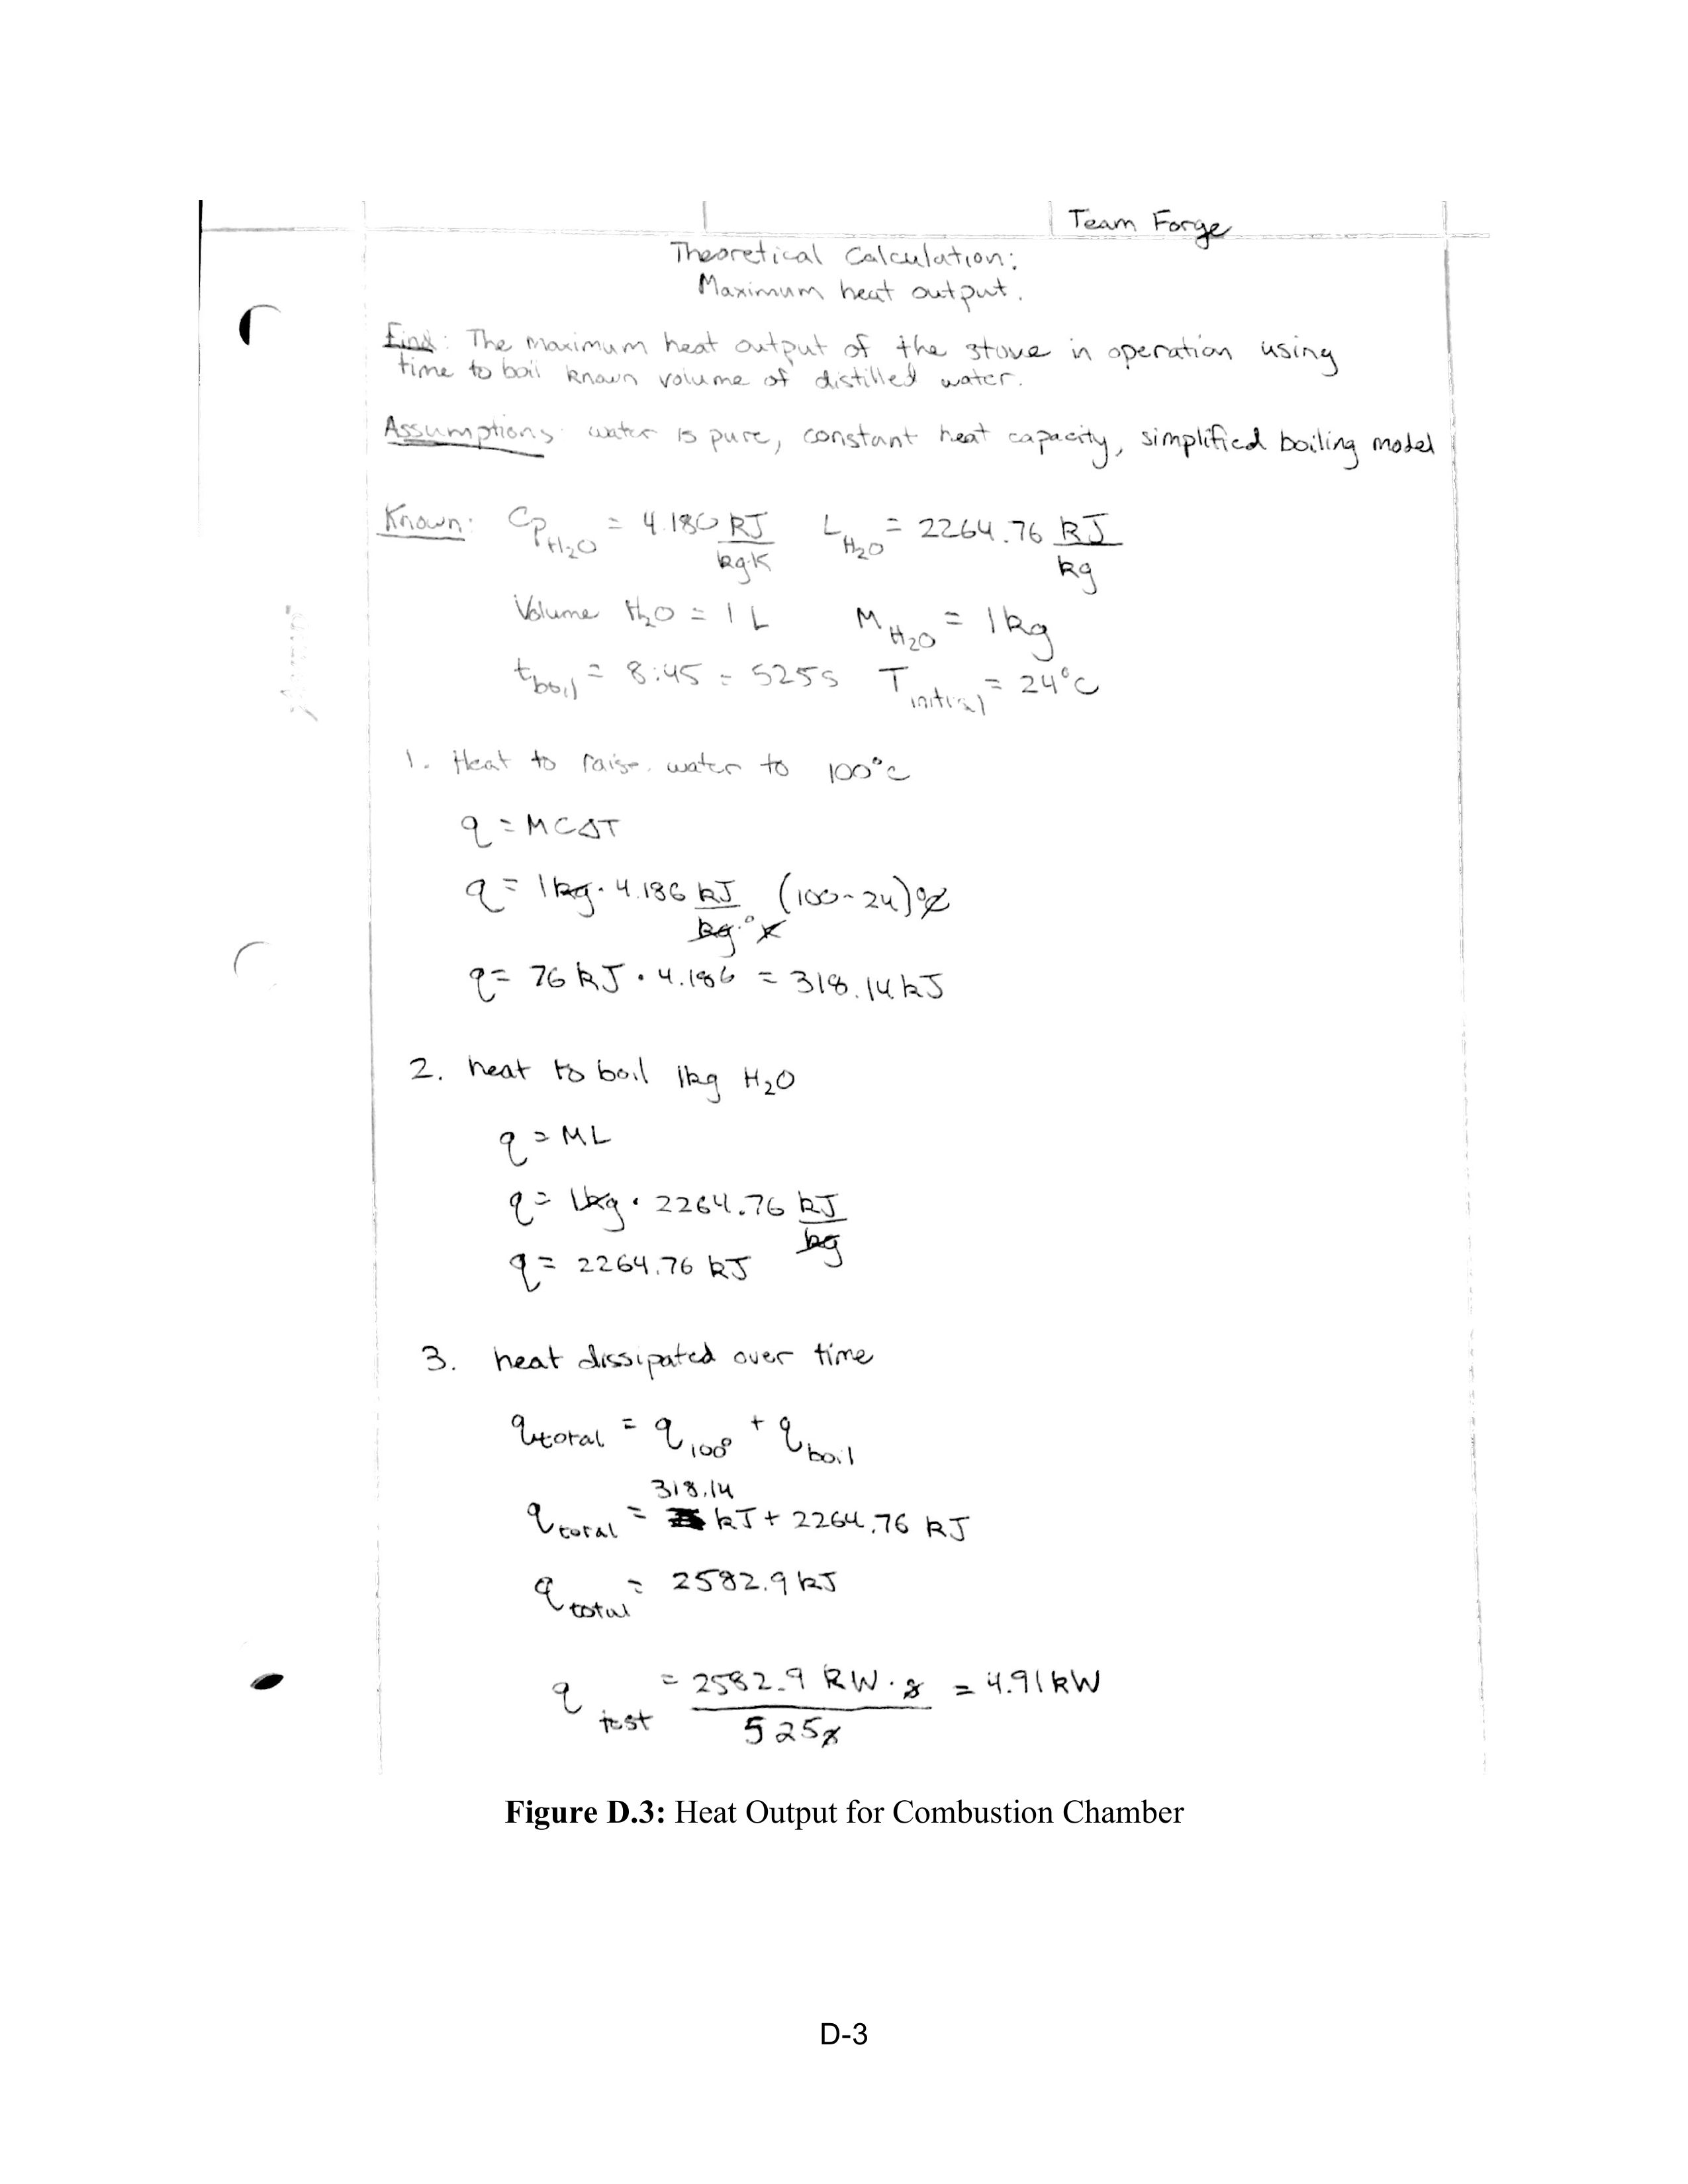 Team Forge
Theoretical Calculation:
Maximum heat output.
Find: The maximum heat output of the stove in operation using
time to boil known volume of distilled water.
Assumptions: water is pure, constant heat capacity, simplified boiling model
Known: Cp H₂O = 4.180 kJ/kg·K L H₂O = 2264.76 kJ/kg
Volume H₂O = 1 L M H₂O = 1 kg
t boil = 8:45 = 525s T initial = 24°C
1. Heat to raise water to 100°C
q = MCΔT
q = 1kg · 4.186 kJ/kg·°K (100-24)°C
q = 76 kJ · 4.186 = 318.14 kJ
2. heat to boil 1kg H₂O
q = ML
q = 1kg · 2264.76 kJ/kg
q = 2264.76 kJ
3. heat dissipated over time
q total = q 100° + q boil
318.14
q total = kJ + 2264.76 kJ
q total = 2582.9 kJ
q test = 2582.9 kW·s / 525s = 4.91 kW
Figure D.3: Heat Output for Combustion Chamber
D-3